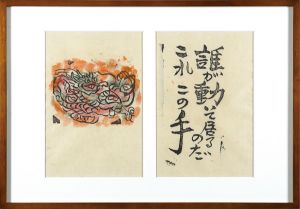 誰が
動いて居るのだ
これ この手